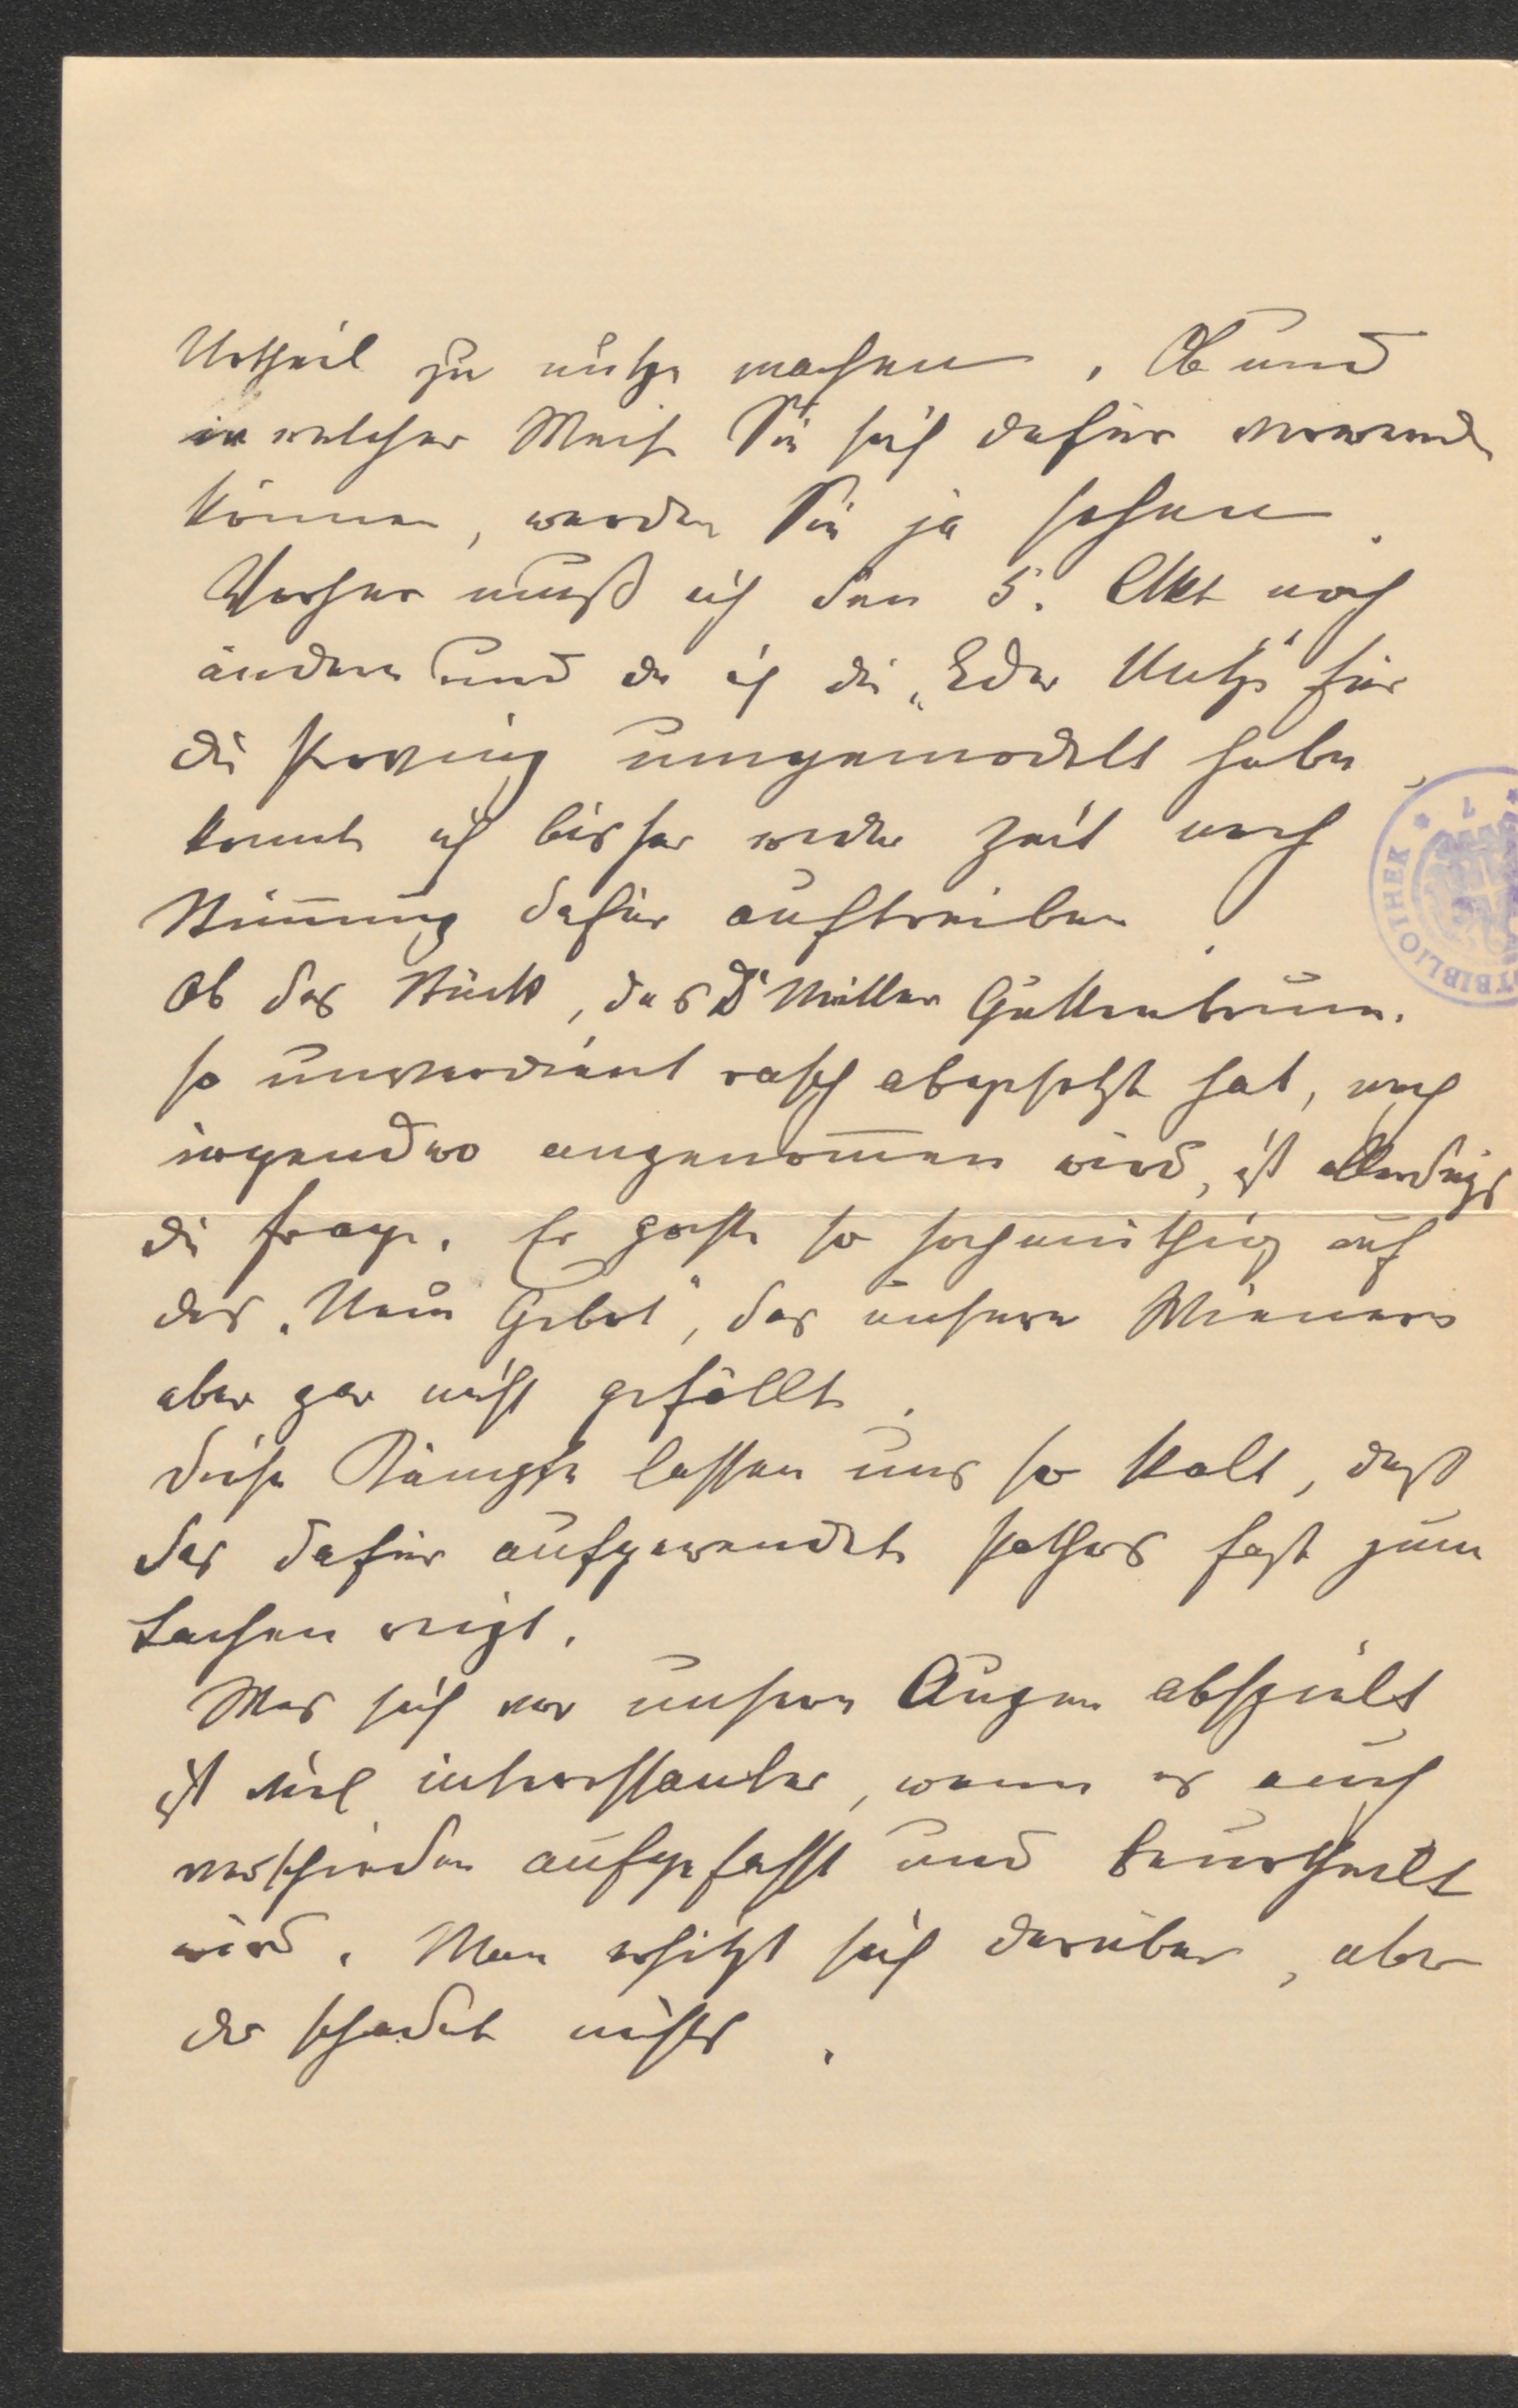 Urtheil zu nutze machen. Ob und
in welcher Weise Sie sich dafür verwenden
können, werden Sie ja sehen.
Vorher muß ich den 5. Akt noch
ändern und da ich die „Eder Mitzi" für
die Provinz umgemodelt habe,
konnte ich bisher weder Zeit noch
Stimmung dafür auftreiben.
Ob das Stück, das Dr Müller Guttenbrunn.
so unverdient rasch abgesetzt hat, noch
irgendwo angenommen wird, ist allerdings
die Frage. Er hoffte so hochmüthig auf
das „Neue Gebot", das unseren Wienern
aber gar nicht gefällt.
Diese Kämpfe lassen uns so kalt, daß
das dafür aufgewendete Pathos fast zum
Lachen reizt.
Was sich vor unseren Augen abspielt
ist viel interessanter, wenn es auch
verschieden aufgefasst und beurtheilt
wird. Man erhitzt sich darüber, aber
das schadet nichts.
BIBLIOTHEK